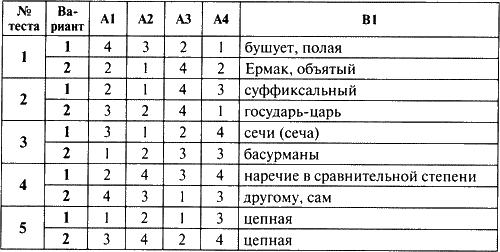 № теста Ва-риант А1 А2 А3 А4 В1
1 1 4 3 2 1 бушует, полая
2 2 1 4 2 Ермак, объятый
2 1 2 1 4 3 суффиксальный
2 3 2 4 1 государь-царь
3 1 3 1 2 4 сечи (сеча)
2 1 2 3 3 басурманы
4 1 2 4 3 4 наречие в сравнительной степени
2 4 3 1 3 другому, сам
5 1 1 2 1 3 цепная
2 3 4 2 4 цепная